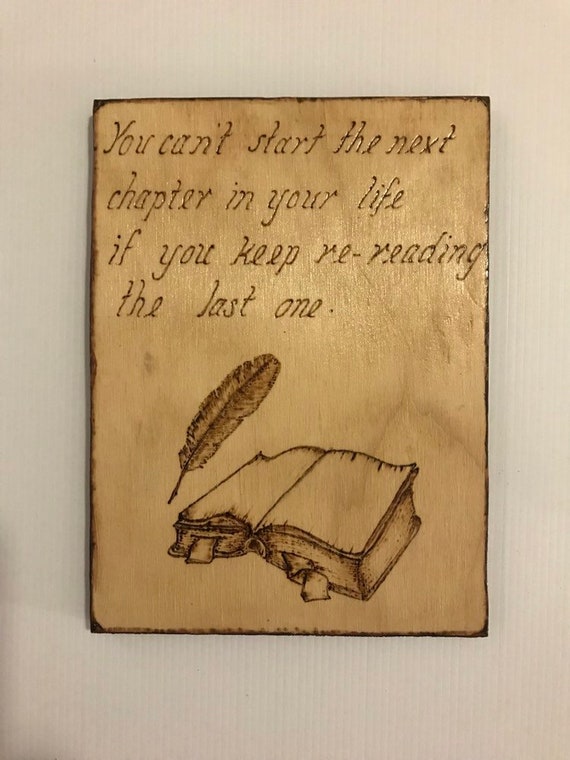 You can't start the next
chapter in your life
if you keep re-reading
the last one.